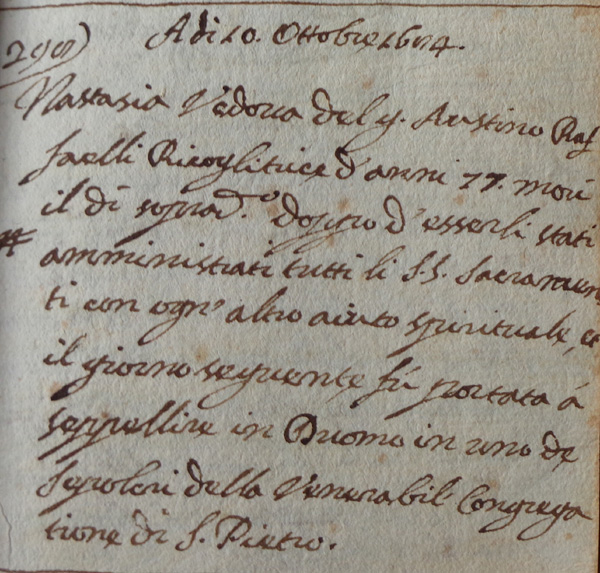 298) Adi 10. Ottobre 1674.
Nastasia Vedova del q. Austino Raf
faelli Ricoglitrice d'anni 77. morì
il dì soprad.o doppo d'esserli stati
# amministrati tutti li S.S. Sacramen
ti con ogn'altro aiuto spirituale, et
il giorno seguente fù portata à
seppellire in Duomo in uno de
sepolcri della Venerabil Congrega
tione di S. Pietro.